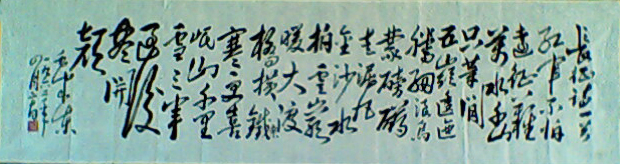 长征诗一首
红军不怕
远征难
万水千山
只等闲
五岭逶迤
腾细浪乌
蒙磅礴
走泥丸
金沙水
拍云崖
暖大渡
桥横铁
索寒更喜
岷山千里
雪三军
过后
尽开
颜